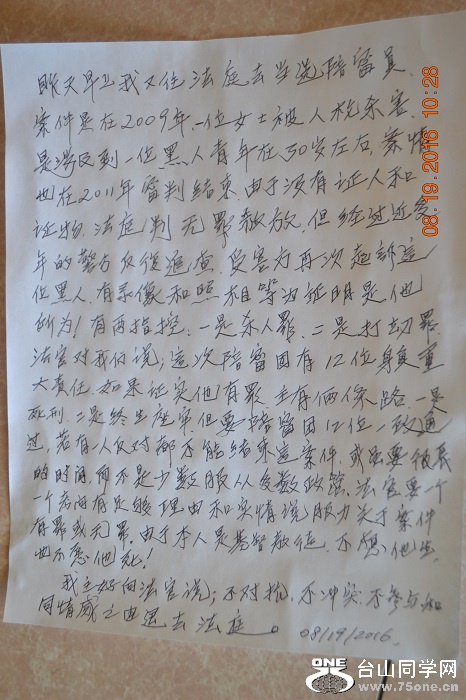 昨天早上我又往法庭去当选陪审员.
案件是在2009年一位女士被人枪杀害
是涉及到一位黑人青年在30岁左右,案情
也在2011年审判结束,由于没有证人和
证物.法庭判无罪散放.但经过近多
年的警方反复追查,受害方再次起诉这
位黑人,有录像和照相等为证明是他
所为!有两指控.一是杀人罪.二是打劫罪.
法官对我们说;这次陪审团有12位身负重
大责任.如果证实他有罪.主有俩条路.一是
死刑.二是终生座牢.但要陪审团12位一致通
过,若有一人反对都不能结束这案件.或需要很长
的时间,而不是少数服从多数政策.法官要一个
一个
有罪或无罪.由于本人是基督教徒.不愿他生
也不愿他死!
我主好向法官说;不对抗.不冲突.不参与和
同情感之由退去法庭。 08/19/2016.
08/19/2016 10:28
ONE 台山同学网
www.75one.cn